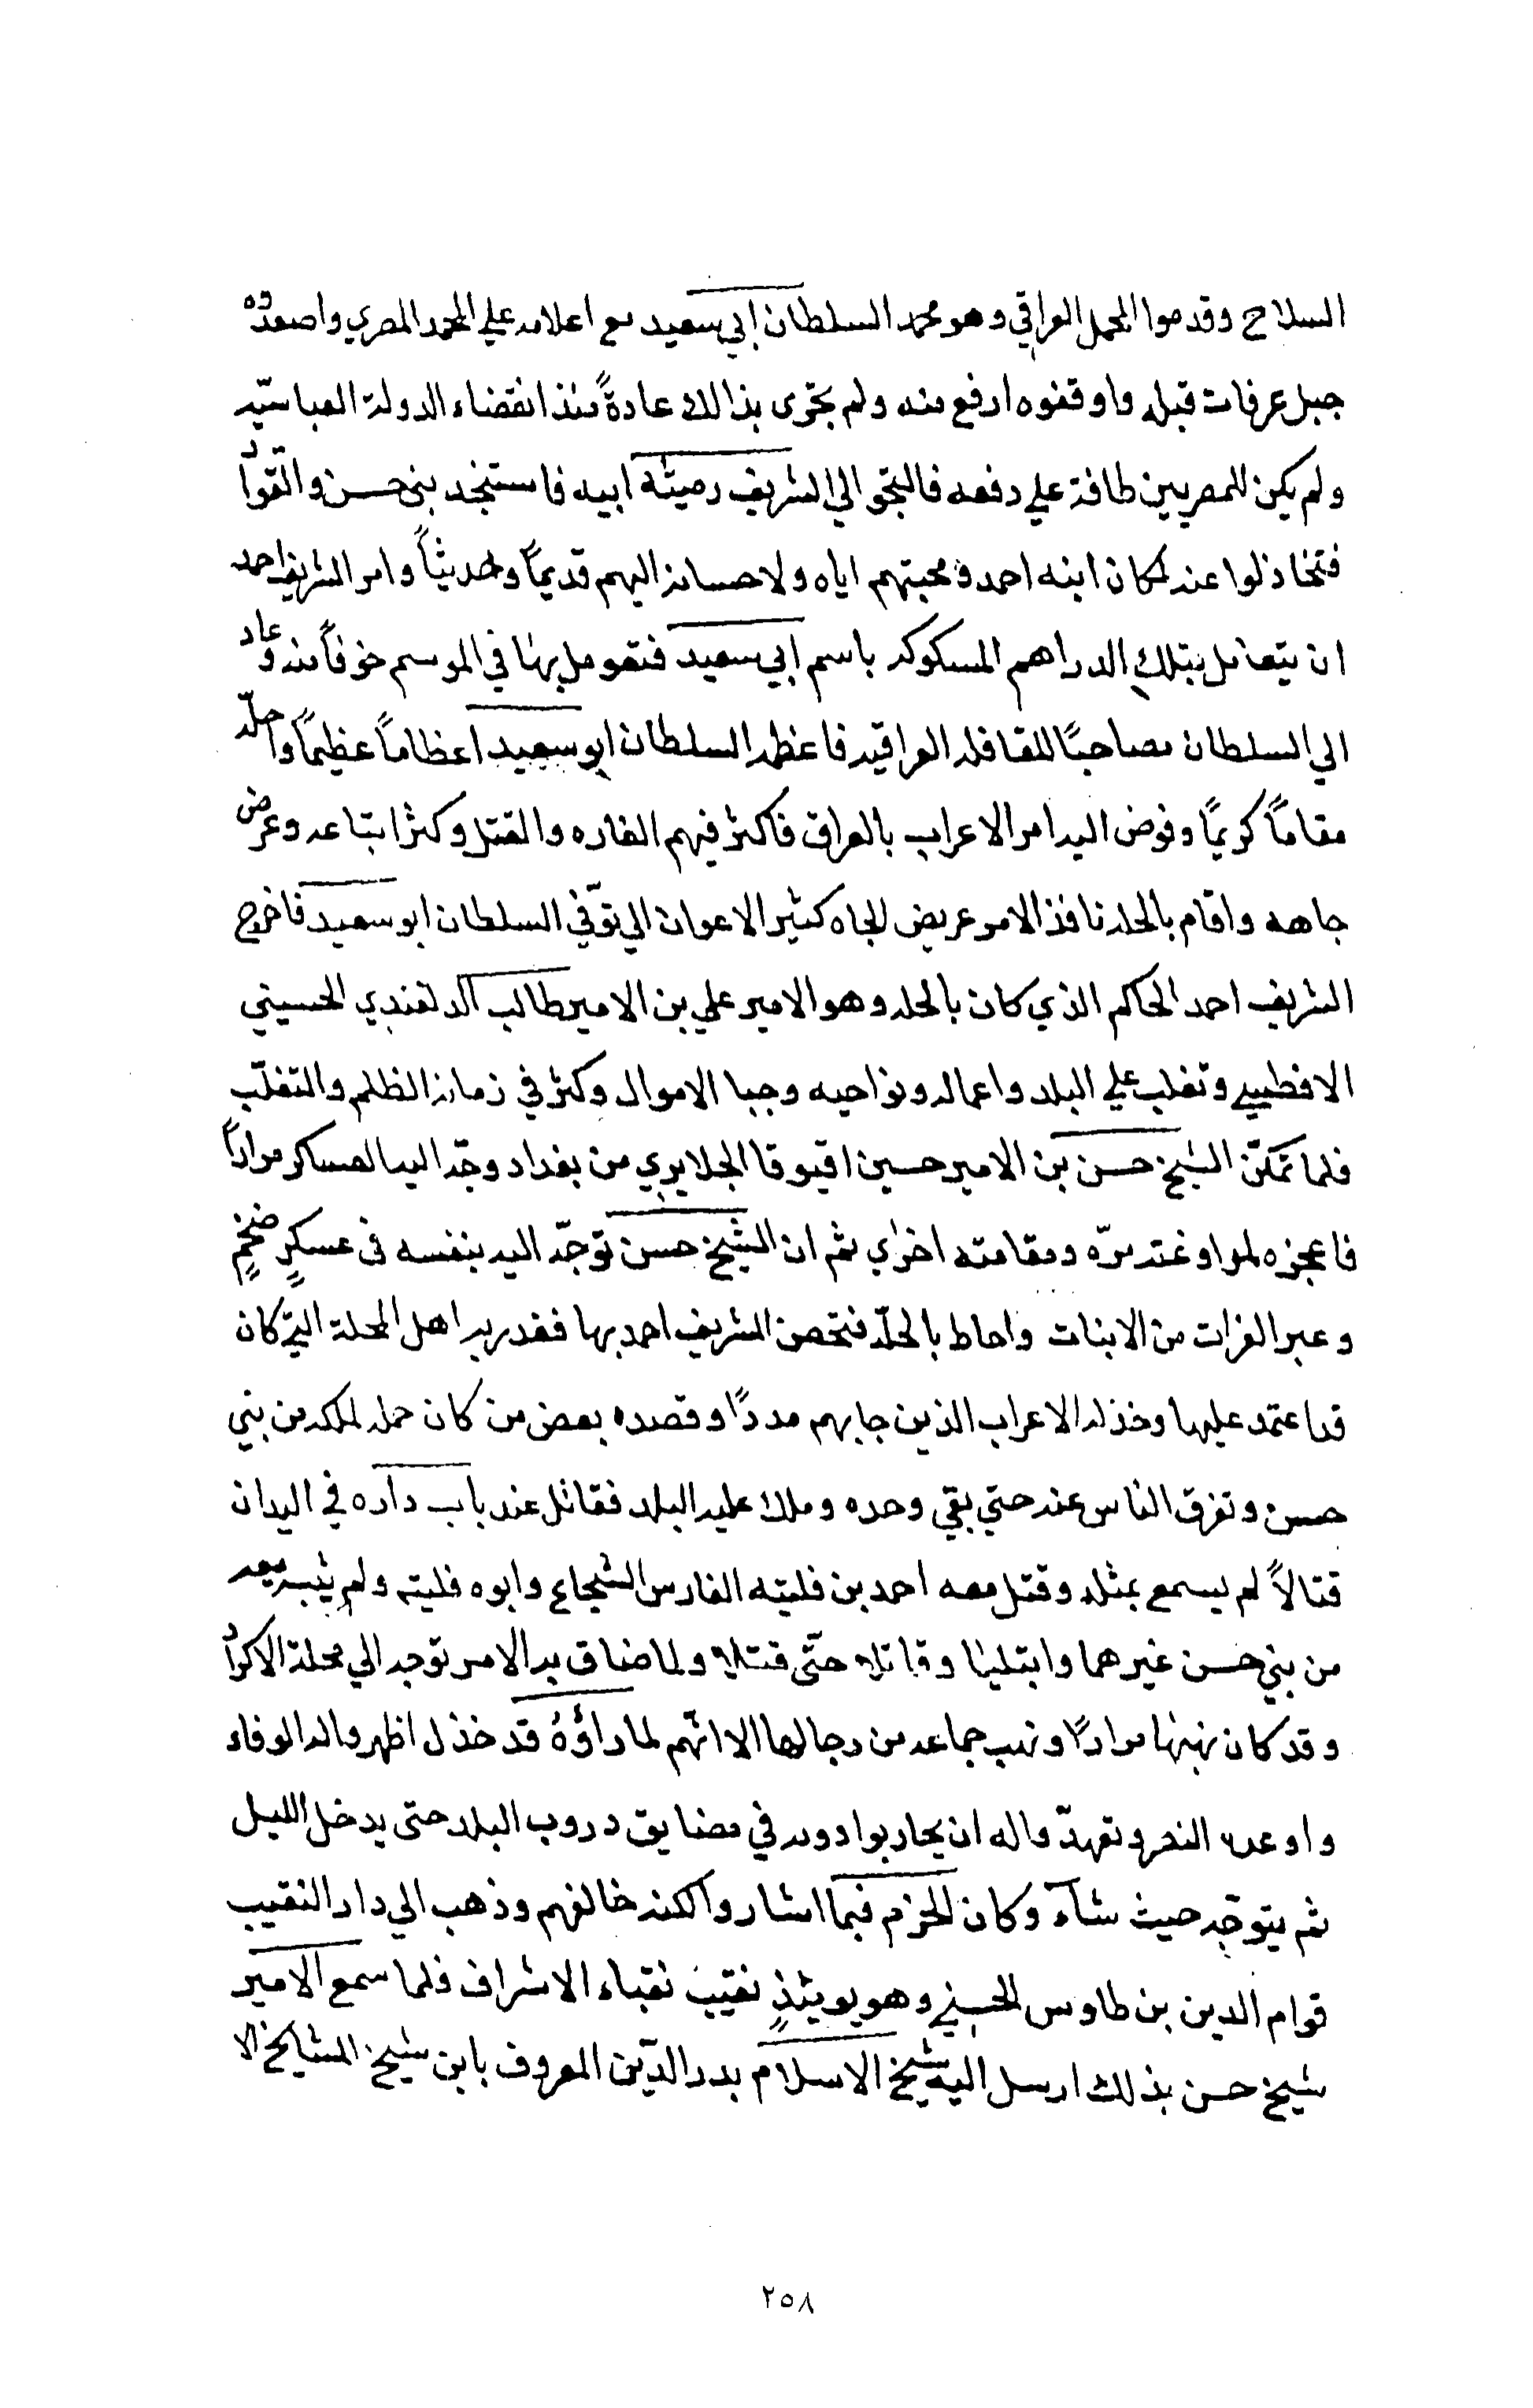 السلاح وقدموا المحمل العراقي وهو محمد السلطان ابي سعيد مع اعلامه علي المحمد المصري واصعدوه
جبل عرفات قبله واوقفوه ارفع منه ولم يجرى بذالك عادةً منذ انقضاء الدولة العباسيّه
ولم يكن للمصريين طاقة علي دفعه فالتجو الي الشريف رميثه ابيه فاستنجد بنى حسن والقوّاد
فتخاذلوا عنه لمكان ابنه احمد ومحبتهم اياه ولاحسانه اليهم قديمًا وحديثاً وامر الشريف احمد
ان يتعامل بتلك الدراهم المسكوكه باسم ابي سعيد فتعومل بها في الموسم خوفاً منه وعاد
الي السلطان مصاحبًا للقافله العراقيه فاعظمه السلطان ابو سعيد اعظاماً عظيمًا واحلّه
مقاماً كريمًا وفوض اليه امر الاعراب بالعراق فاكثر فيهم الغاره والقتل وكثر اتباعه وعرض
جاهه واقام بالحله نافذ الامر عريض الجاه كثير الاعوان الي توّفي السلطان ابو سعيد فاخرج
الشريف احمد الحاكم الذي كان بالحله وهو الامير علي بن الامير طالب الدلقندي الحسيني
الافطسي وتغلب علي البلد واعماله ونواحيه وجبا الاموال وكثر في زمانه الظلم والتغلّب
فلما تمكّن الشيخ حسن بن الامير حسين اقبوقا الجلايري من بغداد وجّه اليه العساكر مراراً
فاعجزه لمراوغته مرّه ومقامته اخراي ثم ان الشيخ حسن توجّه اليه بنفسه فى عسكرٍ ضخمٍ
وعبر الفرات من الابنات واحاط بالحلّه فتحصن الشريف احمد بها فغدر به اهل المحلة التي كان
قد اعتمد عليها وخذله الاعراب الذين جا بهم مددًا وقصده بعض من كان حمله لملكه من بني
حسن وتفرق الناس عنه حتي بقي وحده وملك عليه البلد فقاتل عند باب داره في اليدان
قتالاً لم يسمع بمثله وقتل معه احمد بن فليته الفارس الشجاع وابوه فليته ولم يثبت معه
من بني حسن غيرهما وابتليا وقاتلا حتّى قتلا ولما ضاق به الامر توجه الي محلة الاكراد
وقد كان نهبها مرارًا ونهب جماعه من رجالها الا انّهم لما راؤهُ قد خذل اظهروا له الوفاء
واوعدوه النصر وتعهدّوا له ان يحاربوا دونه في مضايق دروب البلد حتى يدخل الليل
ثم يتوجّه حيث شآء وكان الحزم فيما اشاروا لكنه خالفهم وذهب الي دار النقيب
قوام الدين بن طاوس الحسني وهو يوئيذٍ نقيب نقباء الاشراف فلما سمع الامير
شيخ حسن بذلك ارسل اليه شيخ الاسلام بدر الدّين المعروف بابن شيخ المشايخ الا
٢٥٨